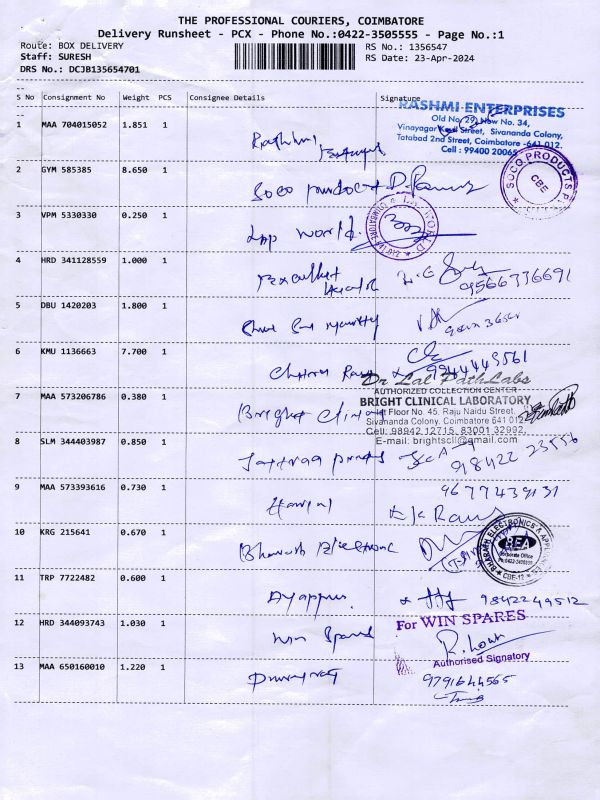 THE PROFESSIONAL COURIERS, COIMBATORE
Delivery Runsheet - PCX - Phone No.:0422-3505555 - Page No.:1
Route: BOX DELIVERY
RS No.: 1356547
Staff: SURESH
RS Date: 23-Apr-2024
DRS No.: DCJB135654701
S No Consignment No Weight PCS Consignee Details Signature
RASHMI ENTERPRISES
Old No. 29, New No. 34,
Vinayagar Street, Sivananda Colony,
Tatabad 2nd Street, Coimbatore -641 012.
Cell : 99400 20065
1 MAA 704015052 1.851 1
2 GYM 585385 8.650 1 Soco
SOCO PRODUCTS P
CBE
3 VPM 5330330 0.250 1 world
WORLD
COIMBATORE
4 HRD 341128559 1.000 1 9566336691
5 DBU 1420203 1.800 1
6 KMU 1136663 7.700 1 9944449561
Dr Lal PathLabs
AUTHORIZED COLLECTION CENTER
BRIGHT CLINICAL LABORATORY
1st Floor No. 45, Raju Naidu Street,
Sivananda Colony, Coimbatore 641 012
Cell: 98942 12715, 83001 32992,
E-mail: brightscll@gmail.com
7 MAA 573206786 0.380 1 Bright
8 SLM 344403987 0.850 1 98422 23556
9 MAA 573393616 0.730 1 9677439131
10 KRG 215641 0.670 1 Bharath
BHARATH ELECTRONICS & APPLIANCES
BEA
Corporate Office
Ph:0422-3500555
CBE-12
11 TRP 7722482 0.600 1 Ayappa 9842249512
12 HRD 344093743 1.030 1 Win Spares
For WIN SPARES
Authorised Signatory
13 MAA 650160010 1.220 1 9791644565